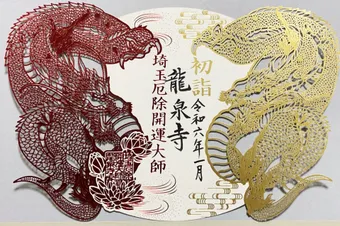 初詣
令和六年一月
龍泉寺
埼玉厄除開運大師